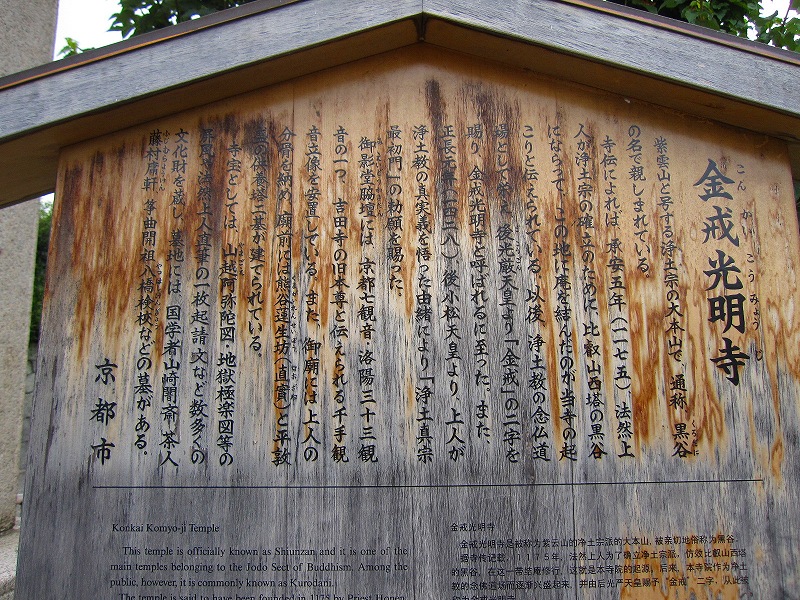 金戒光明寺
こん かい こう みょう じ
紫雲山と号する浄土宗の大本山で、通称、黒谷
くろだに
の名で親しまれている。
寺伝によれば、承安五年（一一七五）法然上
人が浄土宗の確立のために、比叡山西塔の黒谷
にならって、この地に庵を結んだのが当寺の起
こりと伝えられている。以後、浄土教の念仏道
場として栄え、後光厳天皇より「金戒」の二字を
賜り、金戒光明寺と呼ばれるに至った。また、
正長元年（一四二八）後小松天皇より、上人が
浄土教の真実義を悟った由緒により「浄土真宗
最初門」の勅願を賜った。
御影堂脇壇には、京都七観音、洛陽三十三観
音の一つ、吉田寺の旧本尊と伝えられる千手観
音立像を安置している。また、御廟には上人の
分骨を納め、廟前には熊谷蓮生坊（直實）と平敦
の供養塔二基が建てられている。
寺宝としては、山越阿弥陀図・地獄極楽図等の
法然上人直筆の一枚起請文など数多くの
文化財を蔵し、墓地には、国学者山崎闇斎、茶人
藤村庸軒、箏曲開祖八橋検校などの墓がある。
京都市
Konkai Komyo-ji Temple
This temple is officially known as Shiunzan and it is one of the
main temples belonging to the Jodo Sect of Buddhism. Among the
public, however, it is commonly known as Kurodani.
The temple is said to have been founded in 1175 by Priest Honen
金戒光明寺
金戒光明寺是被称为紫云山的净土宗派的大本山，被亲切地俗称为黑谷。
据寺传记载，1175年，法然上人为了确立净土宗派，仿效比叡山西塔
的黑谷，在这一带结庵修行，这就是本寺院的起源。后来，本寺院作为净土
教的念佛道场而逐渐兴盛起来，并由后光严天皇赐予“金戒”二字，从此被